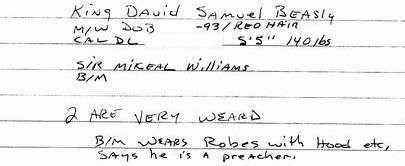 KING DAVID SAMUEL BEASLY
M/W DOB -93/RED HAIR
CAL DL 5'5" 140 lbs
SIR MIKEAL WILLIAMS
B/M
2 ARE VERY WEARD
B/M WEARS Robes with Hood etc,
SAYS he is A preacher.